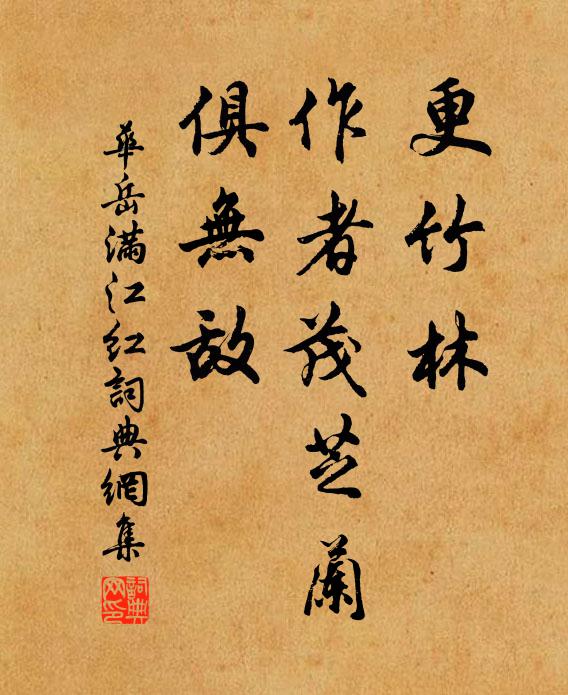 更竹林
作者茂芝蘭
俱無敌
華岳滿江紅詞典網集
詞典
网印